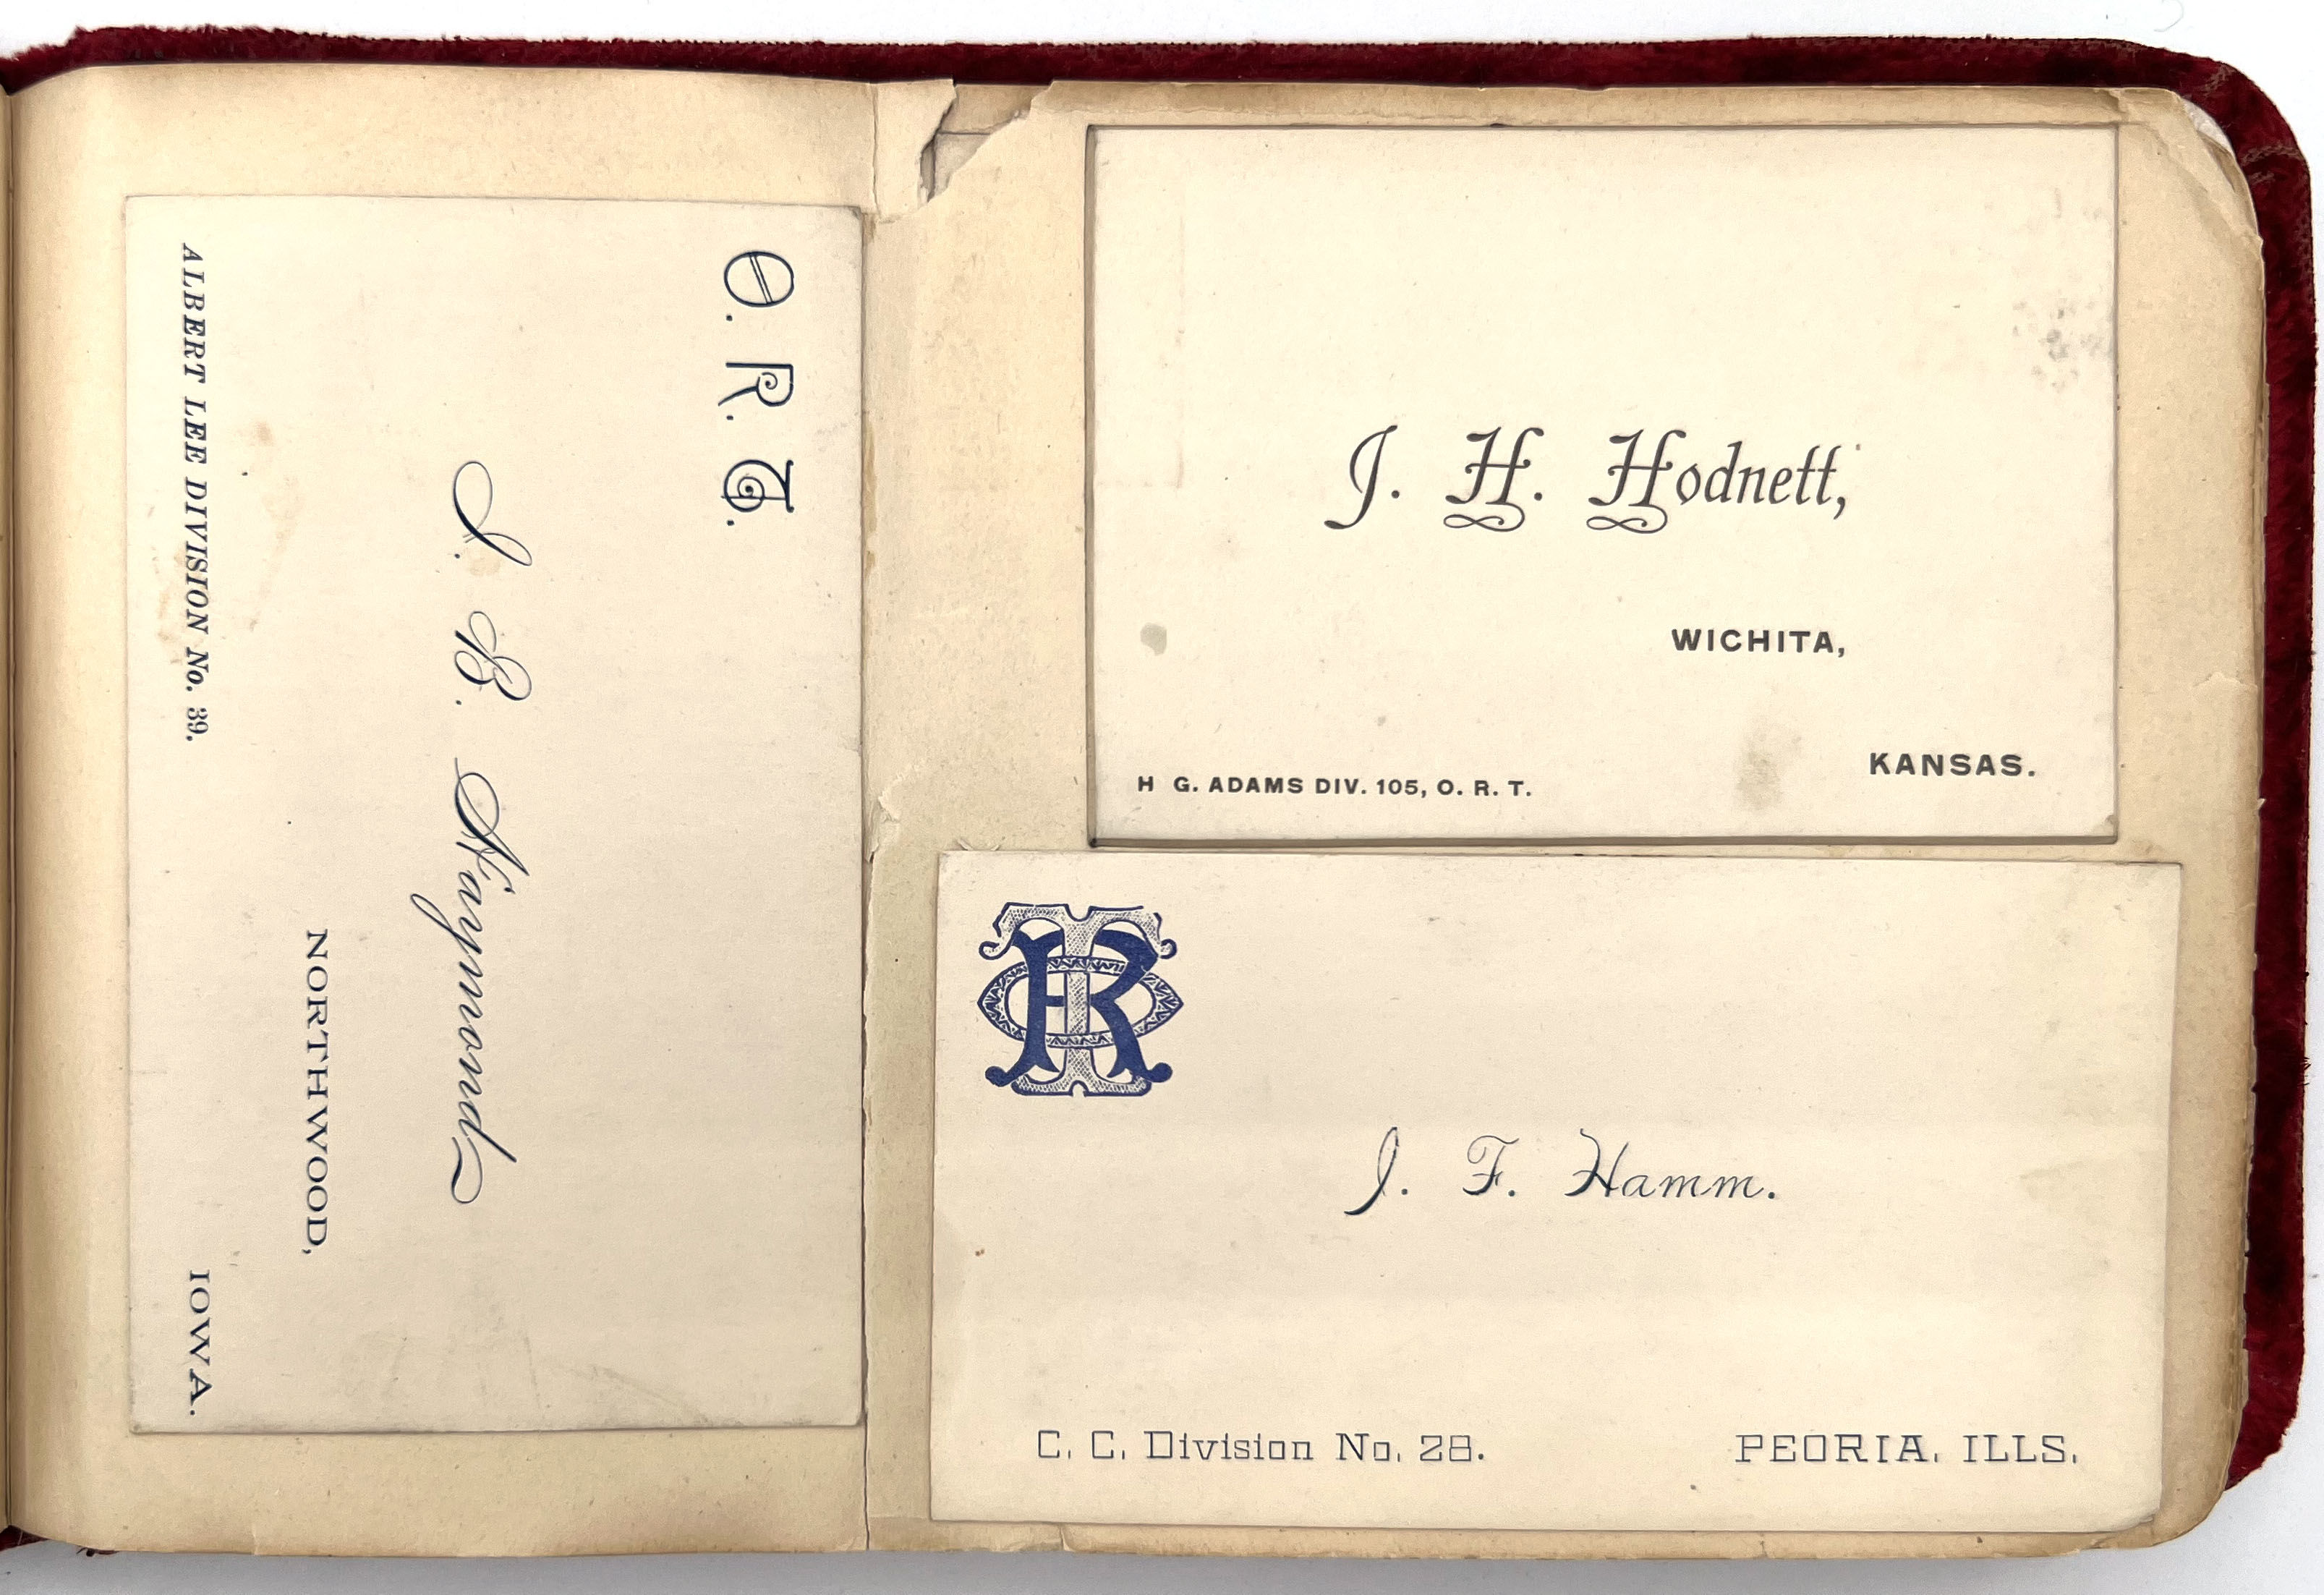 O. R. T.
I. B. Haymond
NORTHWOOD,
ALBERT LEE DIVISION No. 39.
IOWA.
J. H. Hodnett,
WICHITA,
KANSAS.
H G. ADAMS DIV. 105, O. R. T.
ORT
J. F. Hamm.
C. C. Division No. 28.
PEORIA, ILLS.